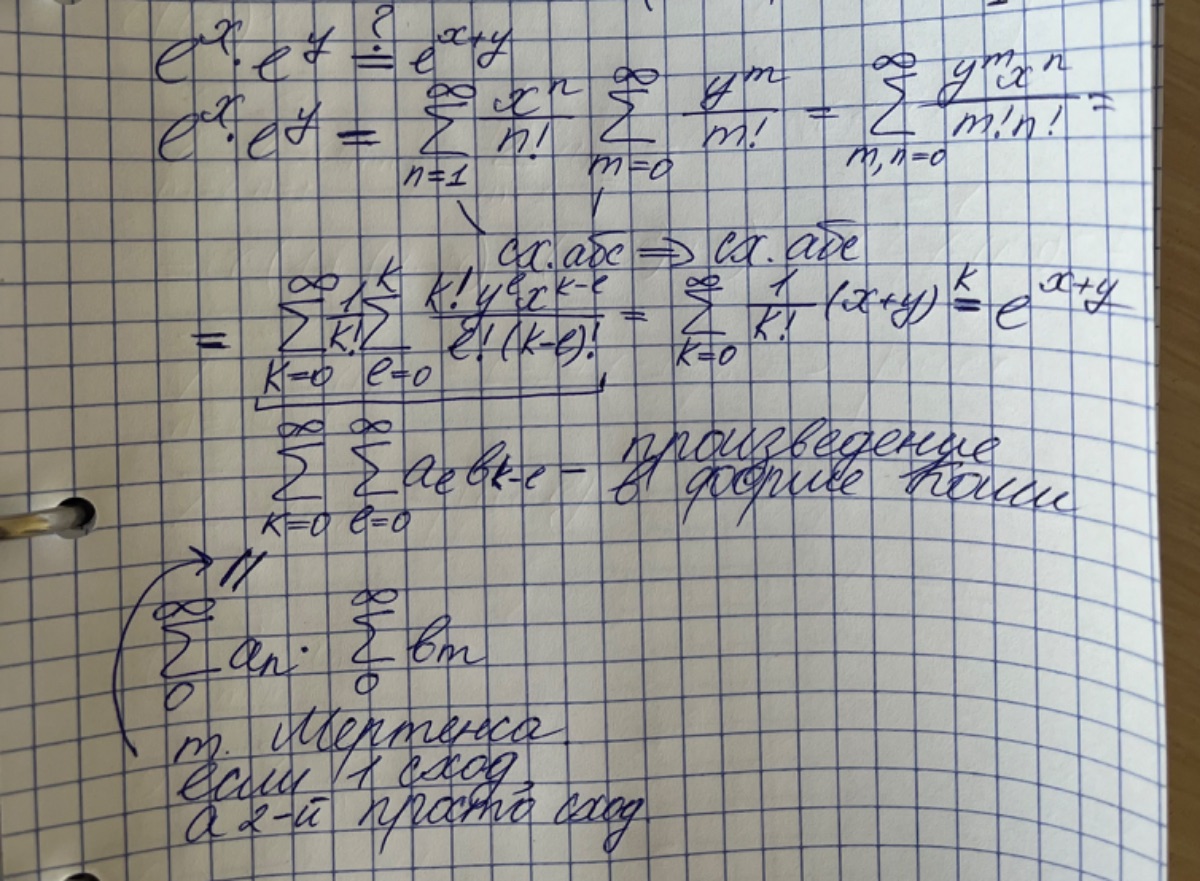 e^x · e^y ≟ e^{x+y}
e^x · e^y = \sum_{n=1}^{∞} \frac{x^n}{n!} \sum_{m=0}^{∞} \frac{y^m}{m!} = \sum_{m,n=0}^{∞} \frac{y^m x^n}{m! n!} =
сх. абс ⇒ сх. абс
= \sum_{k=0}^{∞} \frac{1}{k!} \sum_{e=0}^{k} \frac{k! y^e x^{k-e}}{e! (k-e)!} = \sum_{k=0}^{∞} \frac{1}{k!} (x+y)^k = e^{x+y}
\sum_{k=0}^{∞} \sum_{e=0}^{∞} a_e b_{k-e} – произведение
в форме Коши
\sum_{0}^{∞} a_n · \sum_{0}^{∞} b_m
т. Мертенса
если 1 сход,
а 2-й просто сход